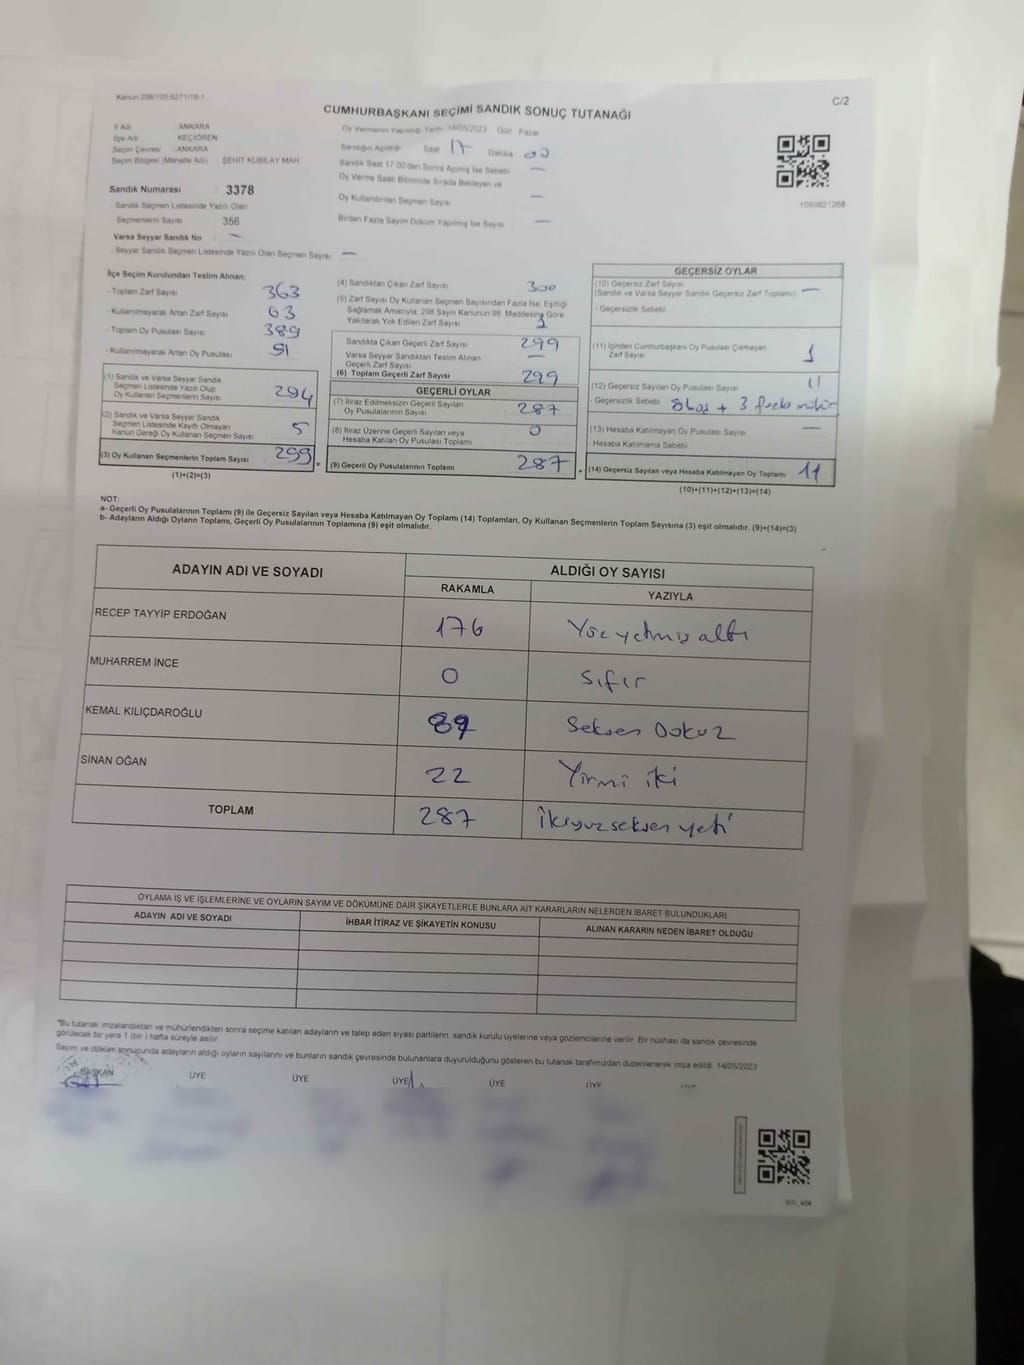 Kanun 298/103,6271/18-1
C/2
CUMHURBAŞKANI SEÇİMİ SANDIK SONUÇ TUTANAĞI
İl Adı : ANKARA
İlçe Adı : KEÇİÖREN
Seçim Çevresi : ANKARA
Seçim Bölgesi (Mahalle Adı) : ŞEHİT KUBİLAY MAH
Oy Vermenin Yapıldığı Tarih 14/05/2023 Gün Pazar
Sandığın Açıldığı Saat 17 Dakika 00
Sandık Saat 17.00'den Sonra Açılmış İse Sebebi —
Oy Verme Saati Bitiminde Sırada Bekleyen ve
Oy Kullandırılan Seçmen Sayısı —
Birden Fazla Sayım Döküm Yapılmış İse Sayısı —
1093821268
Sandık Numarası : 3378
- Sandık Seçmen Listesinde Yazılı Olan
Seçmenlerin Sayısı : 356
Varsa Seyyar Sandık No : —
- Seyyar Sandık Seçmen Listesinde Yazılı Olan Seçmen Sayısı : —
İlçe Seçim Kurulundan Teslim Alınan;
- Toplam Zarf Sayısı : 363
- Kullanılmayarak Artan Zarf Sayısı : 63
- Toplam Oy Pusulası Sayısı : 389
- Kullanılmayarak Artan Oy Pusulası : 91
(1) Sandık ve Varsa Seyyar Sandık
Seçmen Listesinde Yazılı Olup
Oy Kullanan Seçmenlerin Sayısı : 294
(2) Sandık ve Varsa Seyyar Sandık
Seçmen Listesinde Kayıtlı Olmayan
Kanun Gereği Oy Kullanan Seçmen Sayısı : 5
(3) Oy Kullanan Seçmenlerin Toplam Sayısı : 299
(1)+(2)=(3)
(4) Sandıktan Çıkan Zarf Sayısı : 300
(5) Zarf Sayısı Oy Kullanan Seçmen Sayısından Fazla İse, Eşitliği
Sağlamak Amacıyla, 298 Sayılı Kanunun 98. Maddesine Göre
Yakılarak Yok Edilen Zarf Sayısı : 1
Sandıkta Çıkan Geçerli Zarf Sayısı : 299
Varsa Seyyar Sandıktan Teslim Alınan
Geçerli Zarf Sayısı : —
(6) Toplam Geçerli Zarf Sayısı : 299
GEÇERLİ OYLAR
(7) İtiraz Edilmeksizin Geçerli Sayılan
Oy Pusulalarının Sayısı : 287
(8) İtiraz Üzerine Geçerli Sayılan veya
Hesaba Katılan Oy Pusulası Toplamı : 0
(9) Geçerli Oy Pusulalarının Toplamı : 287
GEÇERSİZ OYLAR
(10) Geçersiz Zarf Sayısı
(Sandık ve Varsa Seyyar Sandık Geçersiz Zarf Toplamı) : —
- Geçersizlik Sebebi :
(11) İçinden Cumhurbaşkanı Oy Pusulası Çıkmayan
Zarf Sayısı : 1
(12) Geçersiz Sayılan Oy Pusulası Sayısı : 11
- Geçersizlik Sebebi : 8 boş + 3 fazla mühür
(13) Hesaba Katılmayan Oy Pusulası Sayısı : —
- Hesaba Katılmama Sebebi :
(14) Geçersiz Sayılan veya Hesaba Katılmayan Oy Toplamı : 11
(10)+(11)+(12)+(13)=(14)
NOT:
a- Geçerli Oy Pusulalarının Toplamı (9) ile Geçersiz Sayılan veya Hesaba Katılmayan Oy Toplamı (14) Toplamları, Oy Kullanan Seçmenlerin Toplam Sayısına (3) eşit olmalıdır. (9)+(14)=(3)
b- Adayların Aldığı Oyların Toplamı, Geçerli Oy Pusulalarının Toplamına (9) eşit olmalıdır.
ADAYIN ADI VE SOYADI
ALDIĞI OY SAYISI
RAKAMLA YAZIYLA
RECEP TAYYİP ERDOĞAN 176 Yüz yetmiş altı
MUHARREM İNCE 0 Sıfır
KEMAL KILIÇDAROĞLU 89 Seksen Dokuz
SİNAN OĞAN 22 Yirmi iki
TOPLAM 287 İkiyüz seksen yedi
OYLAMA İŞ VE İŞLEMLERİNE VE OYLARIN SAYIM VE DÖKÜMÜNE DAİR ŞİKAYETLERLE BUNLARA AİT KARARLARIN NELERDEN İBARET BULUNDUKLARI
ADAYIN ADI VE SOYADI İHBAR İTİRAZ VE ŞİKAYETİN KONUSU ALINAN KARARIN NEDEN İBARET OLDUĞU
*Bu tutanak imzalandıktan ve mühürlendikten sonra seçime katılan adayların ve talep eden siyasi partilerin sandık kurulu üyelerine veya gözlemcilerine verilir. Bir nüshası da sandık çevresinde
görülecek bir yere 1 (bir ) hafta süreyle asılır.
Sayım ve döküm sonucunda adayların aldığı oyların sayılarını ve bunların sandık çevresinde bulunanlara duyurulduğunu gösteren bu tutanak tarafımızdan düzenlenerek imza edildi. 14/05/2023
BAŞKAN ÜYE ÜYE ÜYE ÜYE ÜYE ÜYE